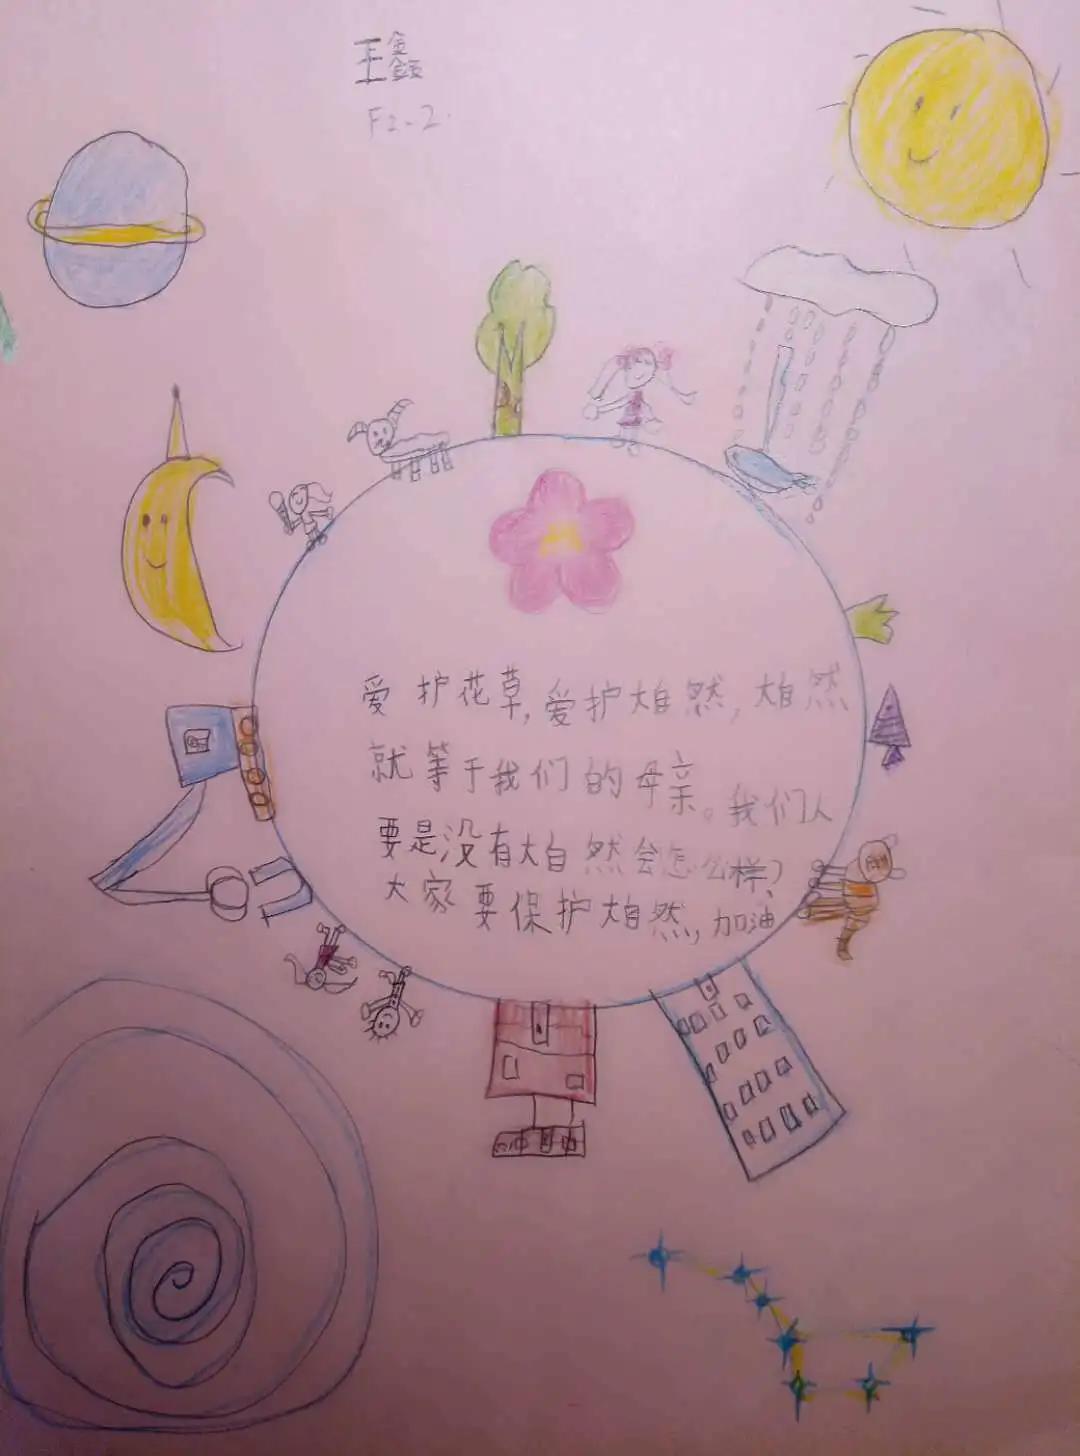 王鑫
F2-2.
爱护花草,爱护大自然,大自然
就等于我们的母亲。我们人
要是没有大自然会怎么样?
大家要保护大自然,加油